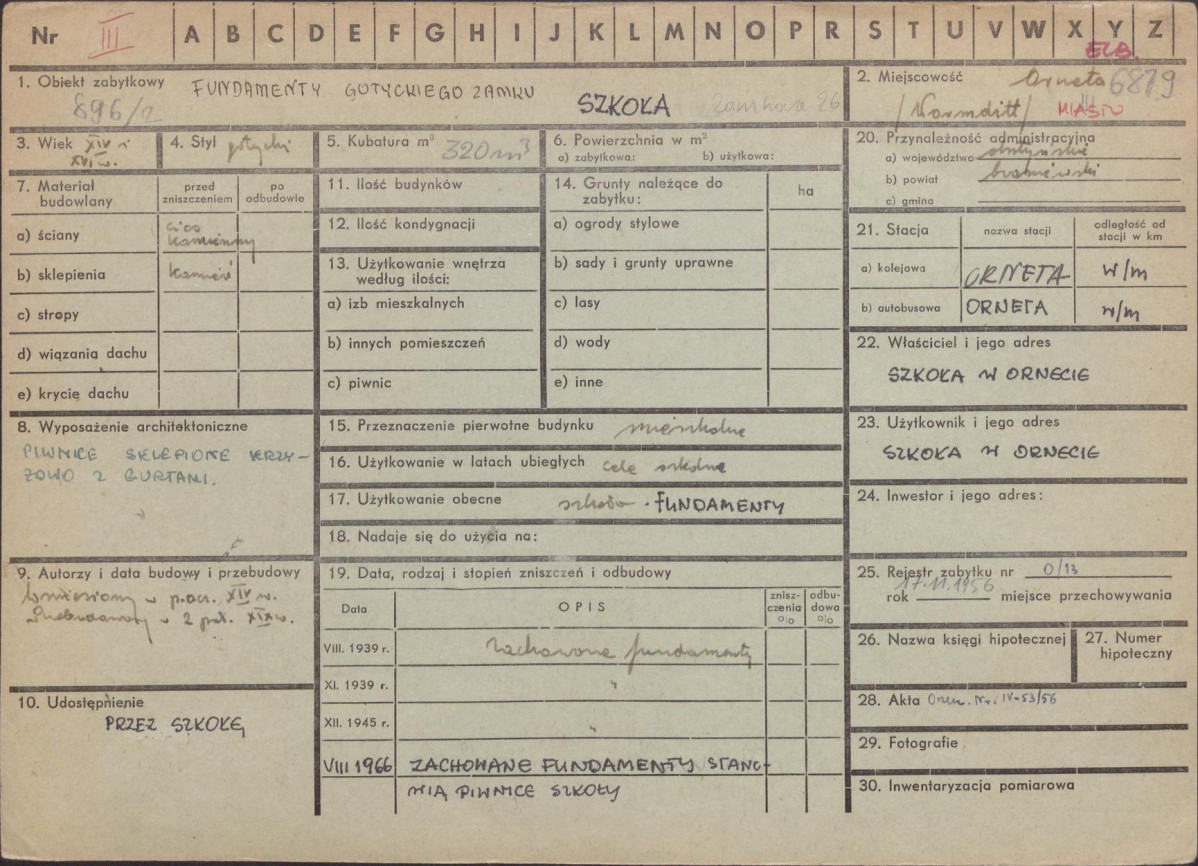 Nr III A B C D E F G H I J K L M N O P R S T U V W X Y Z
ELB.
1. Obiekt zabytkowy FUNDAMENTY GOTYCKIEGO ZAMKU
896/2 SZKOŁA Zamkowa 26
2. Miejscowość Orneta 6819
/Wormditt/ MIASTO
3. Wiek XIV i
XVI w.
4. Styl gotycki
5. Kubatura m³ 320 m³
6. Powierzchnia w m²
a) zabytkowa: b) użytkowa:
7. Materiał
budowlany
przed
zniszczeniem
po
odbudowie
a) ściany cios
kamienny
b) sklepienia kamień
c) stropy
d) wiązania dachu
e) krycie dachu
8. Wyposażenie architektoniczne
PIWNICE SKLEPIONE KRZY-
ŻOWO Z GURTAMI.
9. Autorzy i data budowy i przebudowy
Wzniesiony w pocz. XIV w.
Przebudowany w 2 poł. XIX w.
10. Udostępnienie
PRZEZ SZKOŁĘ
11. Ilość budynków
12. Ilość kondygnacji
13. Użytkowanie wnętrza
według ilości:
a) izb mieszkalnych
b) innych pomieszczeń
c) piwnic
14. Grunty należące do
zabytku:
ha
a) ogrody stylowe
b) sady i grunty uprawne
c) lasy
d) wody
e) inne
15. Przeznaczenie pierwotne budynku mieszkalne
16. Użytkowanie w latach ubiegłych cele szkolne
17. Użytkowanie obecne szkoła - FUNDAMENTY
18. Nadaje się do użycia na:
19. Data, rodzaj i stopień zniszczeń i odbudowy
Data
OPIS
znisz-
czenia
%
odbu-
dowa
%
VIII. 1939 r. zachowane fundamenty
XI. 1939 r. "
XII. 1945 r. "
VIII 1966 ZACHOWANE FUNDAMENTY STANO-
WIĄ PIWNICE SZKOŁY
20. Przynależność administracyjna
a) województwo olsztyńskie
b) powiat braniewski
c) gmina
21. Stacja
nazwa stacji
odległość od
stacji w km
a) kolejowa ORNETA w/m
b) autobusowa ORNETA w/m
22. Właściciel i jego adres
SZKOŁA W ORNECIE
23. Użytkownik i jego adres
SZKOŁA W ORNECIE
24. Inwestor i jego adres:
25. Rejestr zabytku nr O/13
rok 17.11.1956 miejsce przechowywania
26. Nazwa księgi hipotecznej
27. Numer
hipoteczny
28. Akta Orzecz. Nr. IV-53/56
29. Fotografie
30. Inwentaryzacja pomiarowa